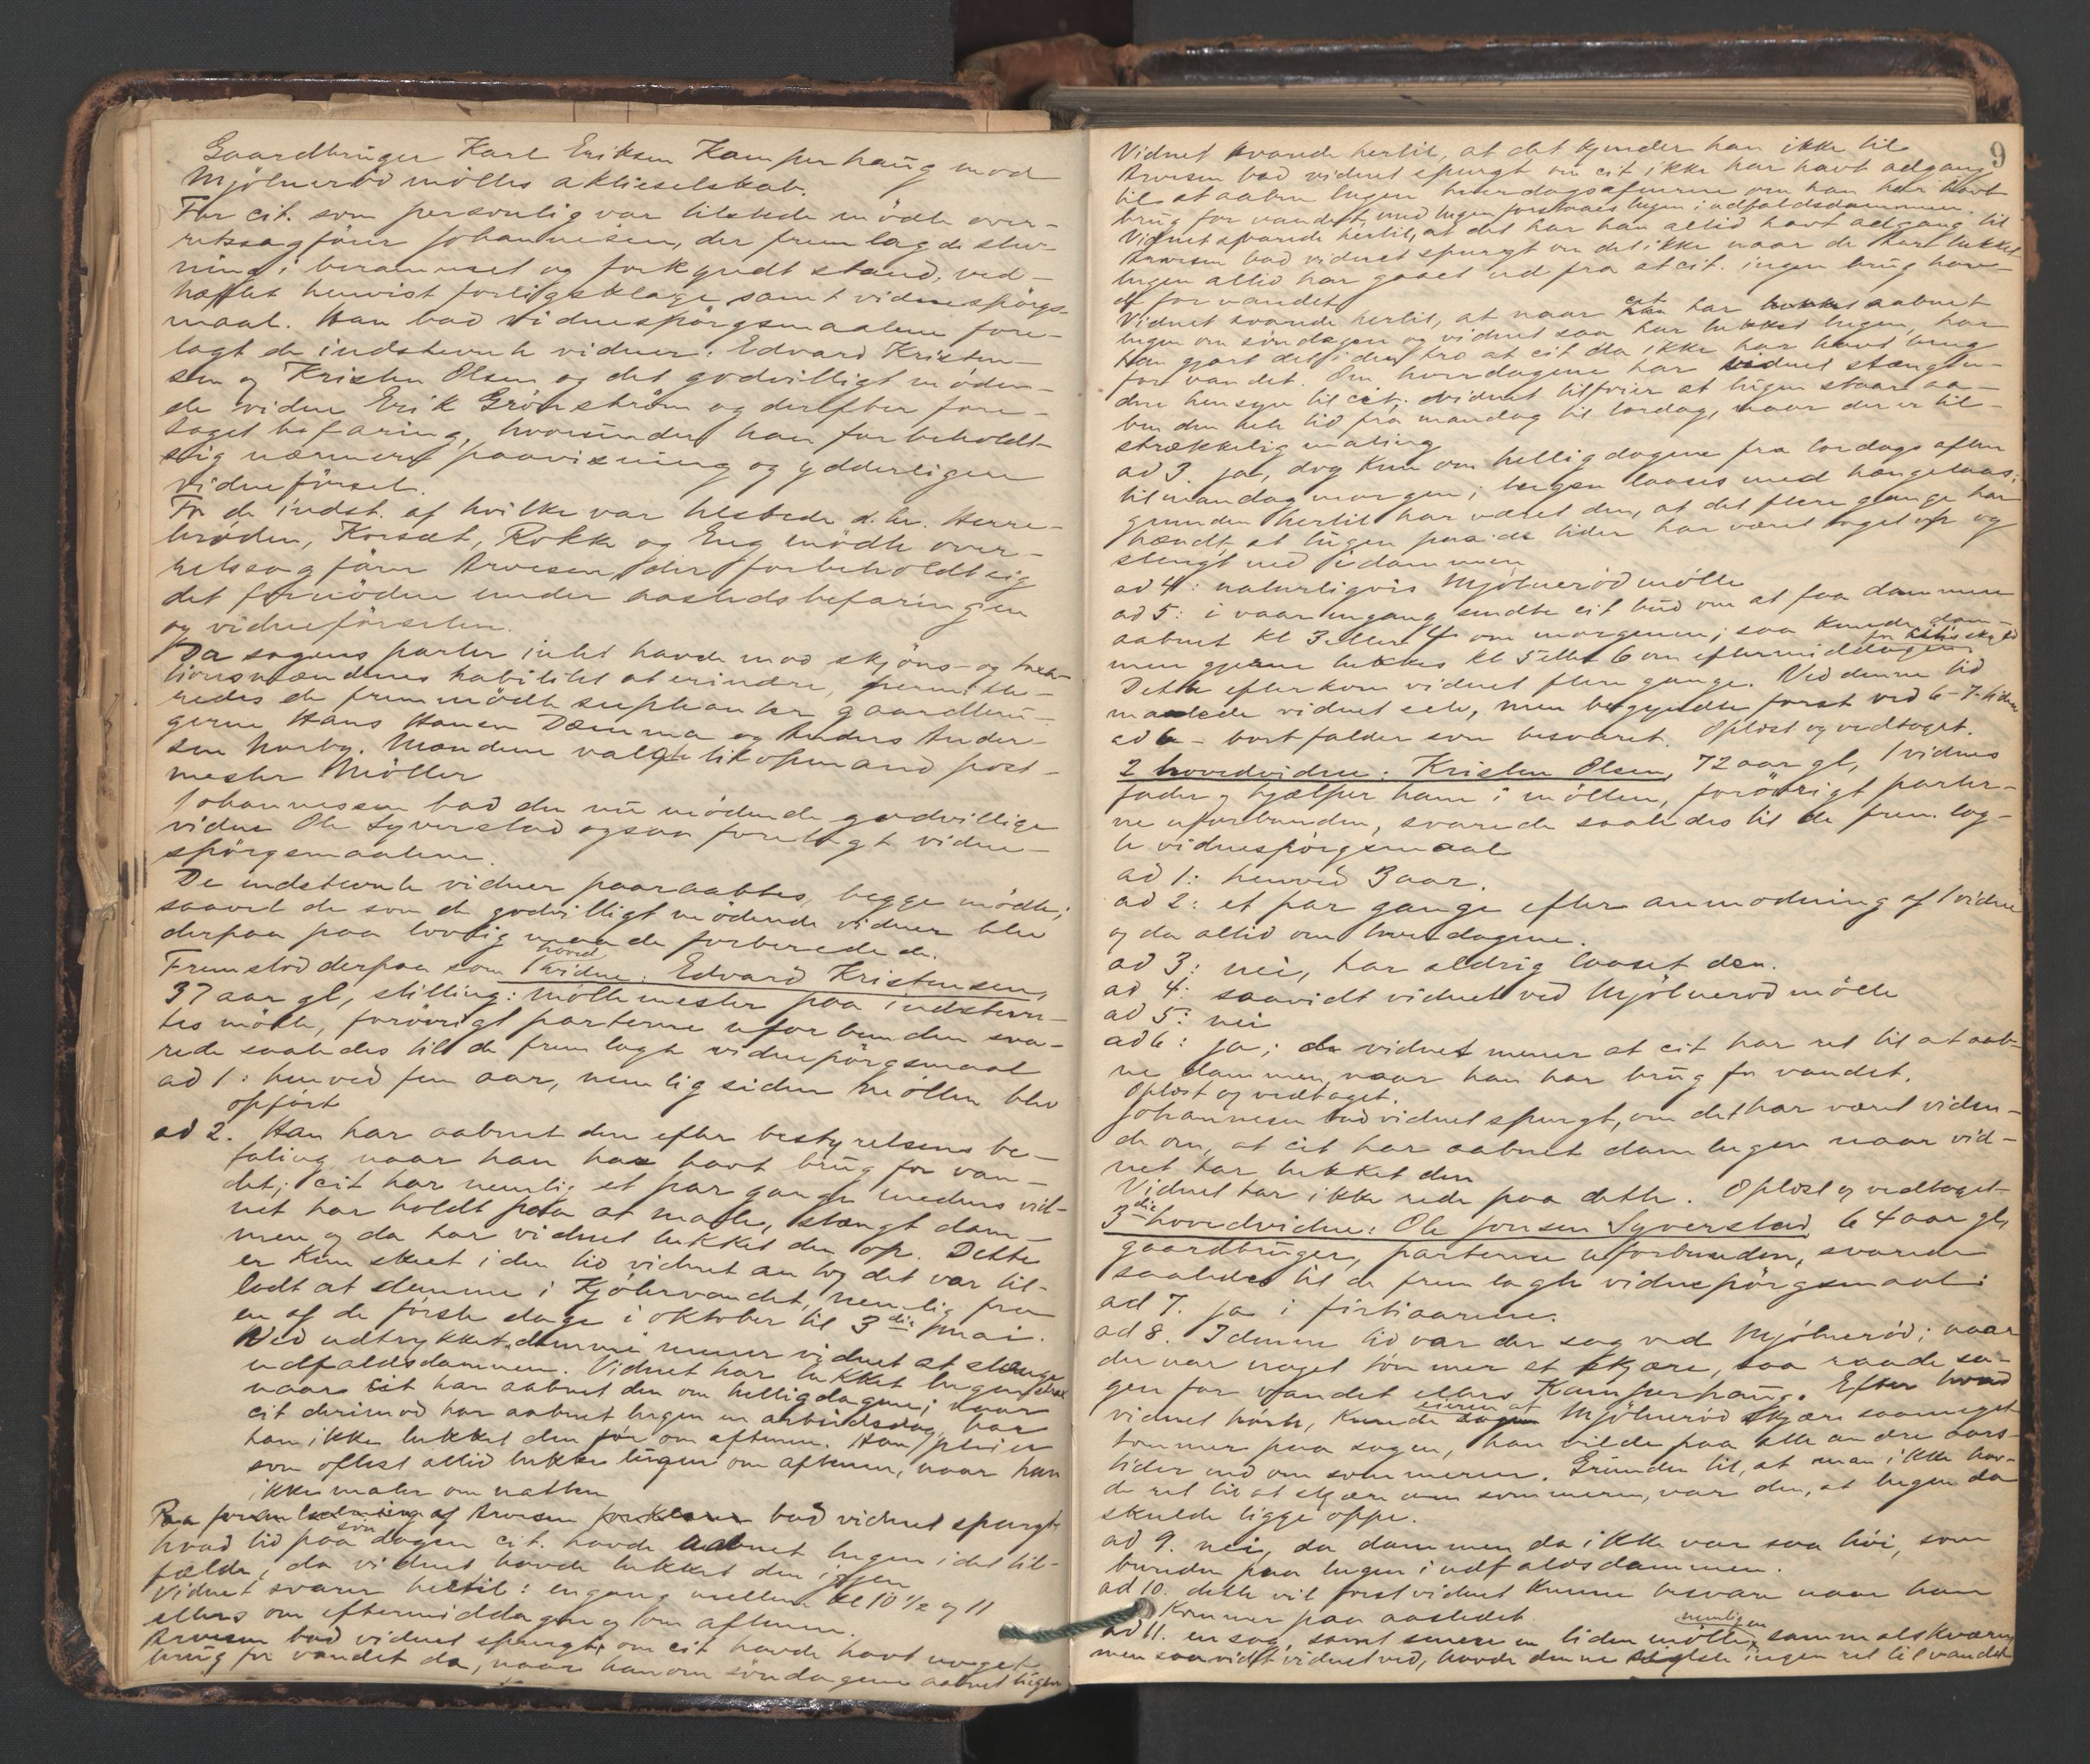 Gaardbruger Karl Eriksen Kamperhaug mod
Mjølnerød mølles aktieselskab.
For cit. som personlig var tilstede mødte over-
retssagfører Johannesen, der fremlagde stev-
ning i berammet og forkyndt stand, ved-
hæftet henvist forligsklage samt vidnespørgs-
maal. Han bad vidnespørgsmaalene fore-
lagt de indstevnte vidner: Edvard Kristen-
sen og Kristen Olsen og det godvilligt møden-
de vidne Erik Grönström og derefter fore-
taget befaring, hvorunder han forbeholdt
sig nærmere paavisning og ydderligere
vidneførsel.
For de indst. af hvilke var tilstede d.hr. Herre-
brøden, Korsæt, Rokke og Eng mødte over-
retssagfører Arvesen der forbeholdt sig
det fornødne under aastedsbefaringen
og vidneførselen.
Da sagens parter intet havde mod skjøns- og taxa-
tionsmændenes habilitet at erindre, permitte-
redes de fremmødte supleanter gaardbru-
gerne Hans Hansen Dæmma og Anders Ander-
sen Norby. Mændene valgte til opmand post-
mester Møller
Johannesen bad den nu mødende godvillige
vidne Ole Syverstad ogsaa forelagt vidne-
spørgsmaalene.
De indstevnte vidner paaraabtes, begge mødte;
saavel de som de godvilligt mødende vidner blev
derpaa paa lovlig maade forberedede.
Fremstod derpaa som 1 hovedvidne: Edvard Kristensen,
37 aar gl, stilling: møllemester paa indstevn-
tes mølle, forøvrigt parterne uforbunden sva-
rede saaledes til de fremlagte vidnespörgsmaal
ad 1: henved fem aar, nemlig siden møllen blev
opført
ad 2. Han har aabnet den efter bestyrelsens be-
faling naar han har havt brug for van-
det; cit har nemlig et par gange medens vid-
net har holdt paa at male, stængt dam-
men og da har vidnet lukket den op. Dette
er kun skeet i den tid vidnet antog det var til-
ladt at demme i Kjølevandet, nemlig fra
en af de første dage i oktober til 3die mai.
Ved udtrykket demme mener vidnet at stænge
udfaldsdammen. Vidnet har lukket lugen strax
naar cit har aabnet den om helligdagene; naar
cit derimod har aabnet lugen en arbeidsdag, har
han ikke lukket den før om aftenen. Han pleier
som oftest altid lukke lugen om aftenen, naar han
ikke maler om natten
Paa foranledning af Arvesen bad vidnet spurgt
hvad tid paa søndagen cit. havde aabnet lugen i det til-
fælde, da vidnet havde lukket den igjen
Vidnet svarer hertil: engang mellem kl 10 1/2 og 11
ellers om eftermiddagen og om aftenen.
Arvesen bad vidnet spurgt, om cit havde havt noget
brug for vandet da, naar han om søndagene aabnet lugen
9
Vidnet svarede hertil, at det kjender han ikke til
Arvesen bad vidnet spurgt om cit ikke har havt adgang
til at aabne lugen hverdagsaftnerne om han har havt
brug for vandet, med lugen forstaaes lugen i udfaldsdammen.
Vidnet svarede hertil, at det har han altid havt adgang til
Arvesen bad vidnet spurgt om det ikke naar de har lukket
lugen altid har gaaet ud fra at cit. ingen brug hav-
de for vandet
Vidnet svarede hertil, at naar cit har aabnet
lugen om søndagen og vidnet saa har lukket lugen, har
han gjort det i den tro at cit da ikke har havt brug
for vandet. Om hverdagene har vidnet stængt u-
den hensyn til cit; vidnet tilføier at lugen staar aa-
ben den hele tid fra mandag til lørdag, naar der er til-
strækkelig maling
ad 3. ja, dog kun om helligdagene fra lørdags aften
til mandag morgen; lugen laases med hængelaas;
grunden hertil har været den, at det flere gange har
hændt, at lugen paa de tider har været taget op og
slengt ned i dammen
ad 4: naturligvis Mjølnerød mølle
ad 5: i vaar engang sendte cit bud om at faa dammen
aabnet kl 3 eller 4 om morgenen; saa kunde dam-
men gjerne lukkes kl 5 eller 6 om eftermiddagen
Dette efterkom vidnet flere gange. Ved denne tid
malede vidnet selv, men begyndte først ved 6-7-tiden
ad 6 - bortfalder som besvaret. Oplæst og vedtaget.
2 hovedvidne: Kristen Olsen, 72 aar gl, 1 vidnes
fader og hjælper ham i møllen, forøvrigt parter-
ne uforbunden, svarede saaledes til de fremlag-
te vidnespørgsmaal
ad 1: henved 3 aar.
ad 2: et par gange efter anmodning af 1 vidne
og da altid om hverdagene.
ad 3: nei, har aldrig laaset den.
ad 4: saavidt vidnet ved Mjølnerød mølle
ad 5: nei
ad 6: ja; da vidnet mener at cit har ret til at aab-
ne dammen, naar han har brug for vandet.
Oplæst og vedtaget.
Johannesen bad vidnet spurgt, om det har været viden-
de om, at cit har aabnet damlugen naar vid-
net har lukket den
Vidnet har ikke rede paa dette. Oplæst og vedtaget
3die hovedvidne: Ole Jonsen Syverstad, 64 aar gl,
gaardbruger, parterne uforbunden, svarede
saaledes til de fremlagte vidnespörgsmaal:
ad 7. ja i firtiaarene.
ad 8. I denne tid var der sag ved Mjølnerød; naar
der var noget tømmer at skjære, saa raade sa-
gen for vandet ellers Kamperhaug. Efter hvad
vidnet hørte, kunde eieren af Mjølnerød skjære saameget
tømmer paa sagen, han vilde paa alle andre aars-
tider end om sommeren. Grunden til, at man ikke hav-
de ret til at skjære om sommeren, var den, at lugen da
skulde ligge oppe.
ad 9. nei, da dammen da ikke var saa høi, som
bunden paa lugen i udfaldsdammen.
ad 10. dette vil først vidnet kunne besvare naar han
kommer paa aastedet.
ad 11. en sag, samt senere en liden mølle, nemlig en sammalskværn
men saavidt vidnet ved, havde denne ingen ret til vandet